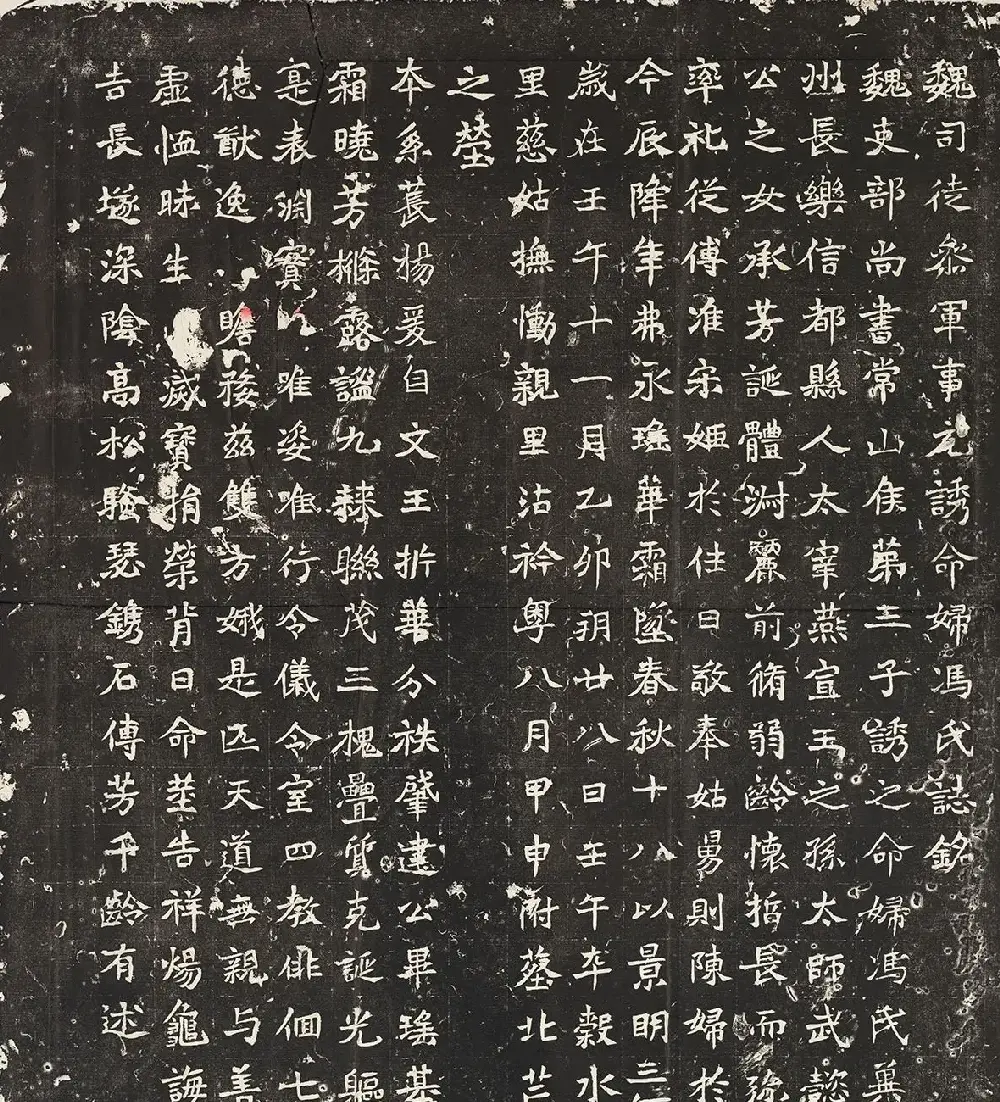 魏司徒參軍事元誘命婦馮氏誌銘
魏吏部尚書常山侯第三子誘之命婦馮氏冀
州長樂信都縣人太宰燕宣王之孫太師武懿
公之女承芳誕體淑麗前脩弱齡懷哲長而
率礼從傅准宋姬於往日敬奉姑舅則陳婦於
今辰降年弗永瑤華霜墜春秋十八以景明三
歲在壬午十一月乙卯朔廿八日壬午卒穀水
里慈姑撫慟親里沾衿粵八月甲申附塟北芒
之塋
本系萇楊爰自文王折華分秩肇建公畢瑤基
霜曉芳條露謐九棘聯茂三槐疊質克誕光軀
寔表淵實 唯姿唯行令儀令室四教俳佪七
德猷逸 瞻發茲雙方娥是匹天道無親与善
虛恤昧生 滅寶捐榮背日命筮告祥煬龜誨
吉長塏深陰高松騷瑟鐫石傳芳千齡有述